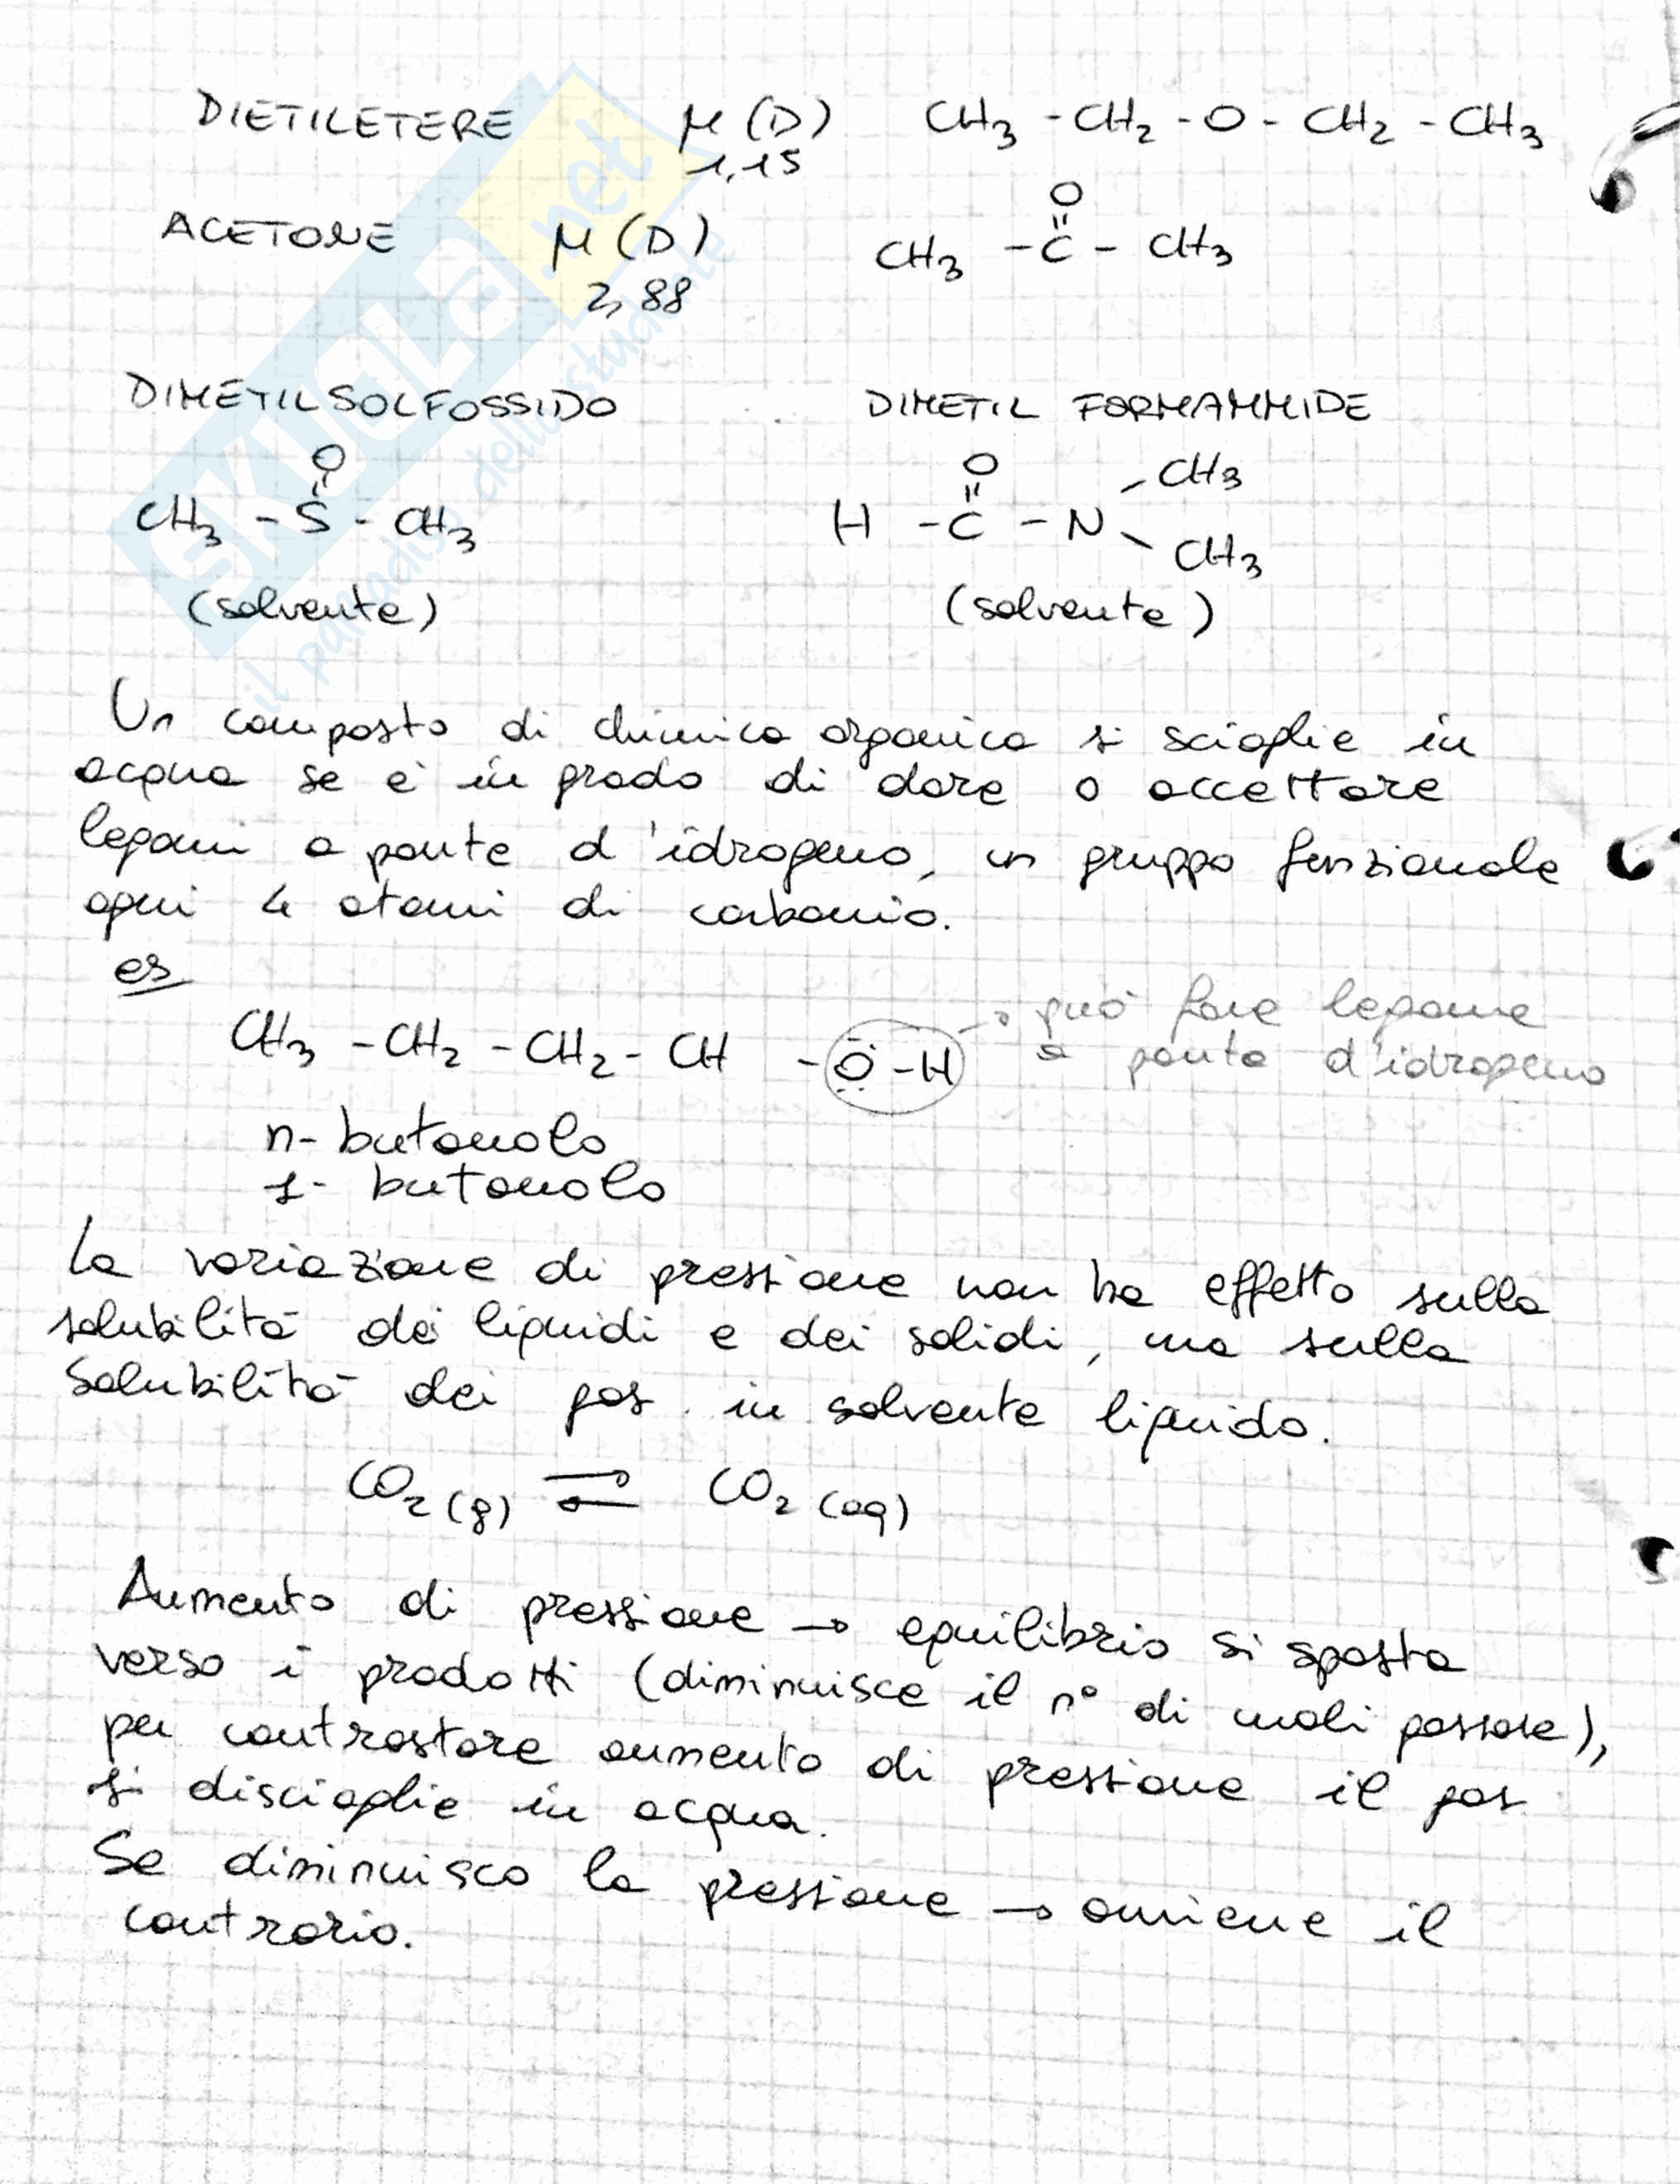 DIETILETERE μ (D) CH₃ - CH₂ - O - CH₂ - CH₃
1,15
O
ACETONE μ (D) CH₃ - C - CH₃
2,88
DIMETILSOLFOSSIDO DIMETIL FORMAMMIDE
O O CH₃
CH₃ - S - CH₃ H - C - N
CH₃
(solvente) (solvente)
Un composto di chimica organica si scioglie in
acqua se è in grado di dare o accettare
legami a ponte d'idrogeno, un gruppo funzionale
ogni 4 atomi di carbonio.
es
→ può fare legame
CH₃ - CH₂ - CH₂ - CH - O - H a ponte d'idrogeno
n- butanolo
1- butanolo
La variazione di pressione non ha effetto sulla
solubilità dei liquidi e dei solidi, ma sulla
solubilità dei gas in solvente liquido.
CO₂ (g) ⇌ CO₂ (aq)
Aumento di pressione → equilibrio si sposta
verso i prodotti (diminuisce il n° di moli gassose),
per contrastare aumento di pressione il gas
si discioglie in acqua.
Se diminuisco la pressione → avviene il
contrario.
SKUOLA.net
il paradiso dello studente